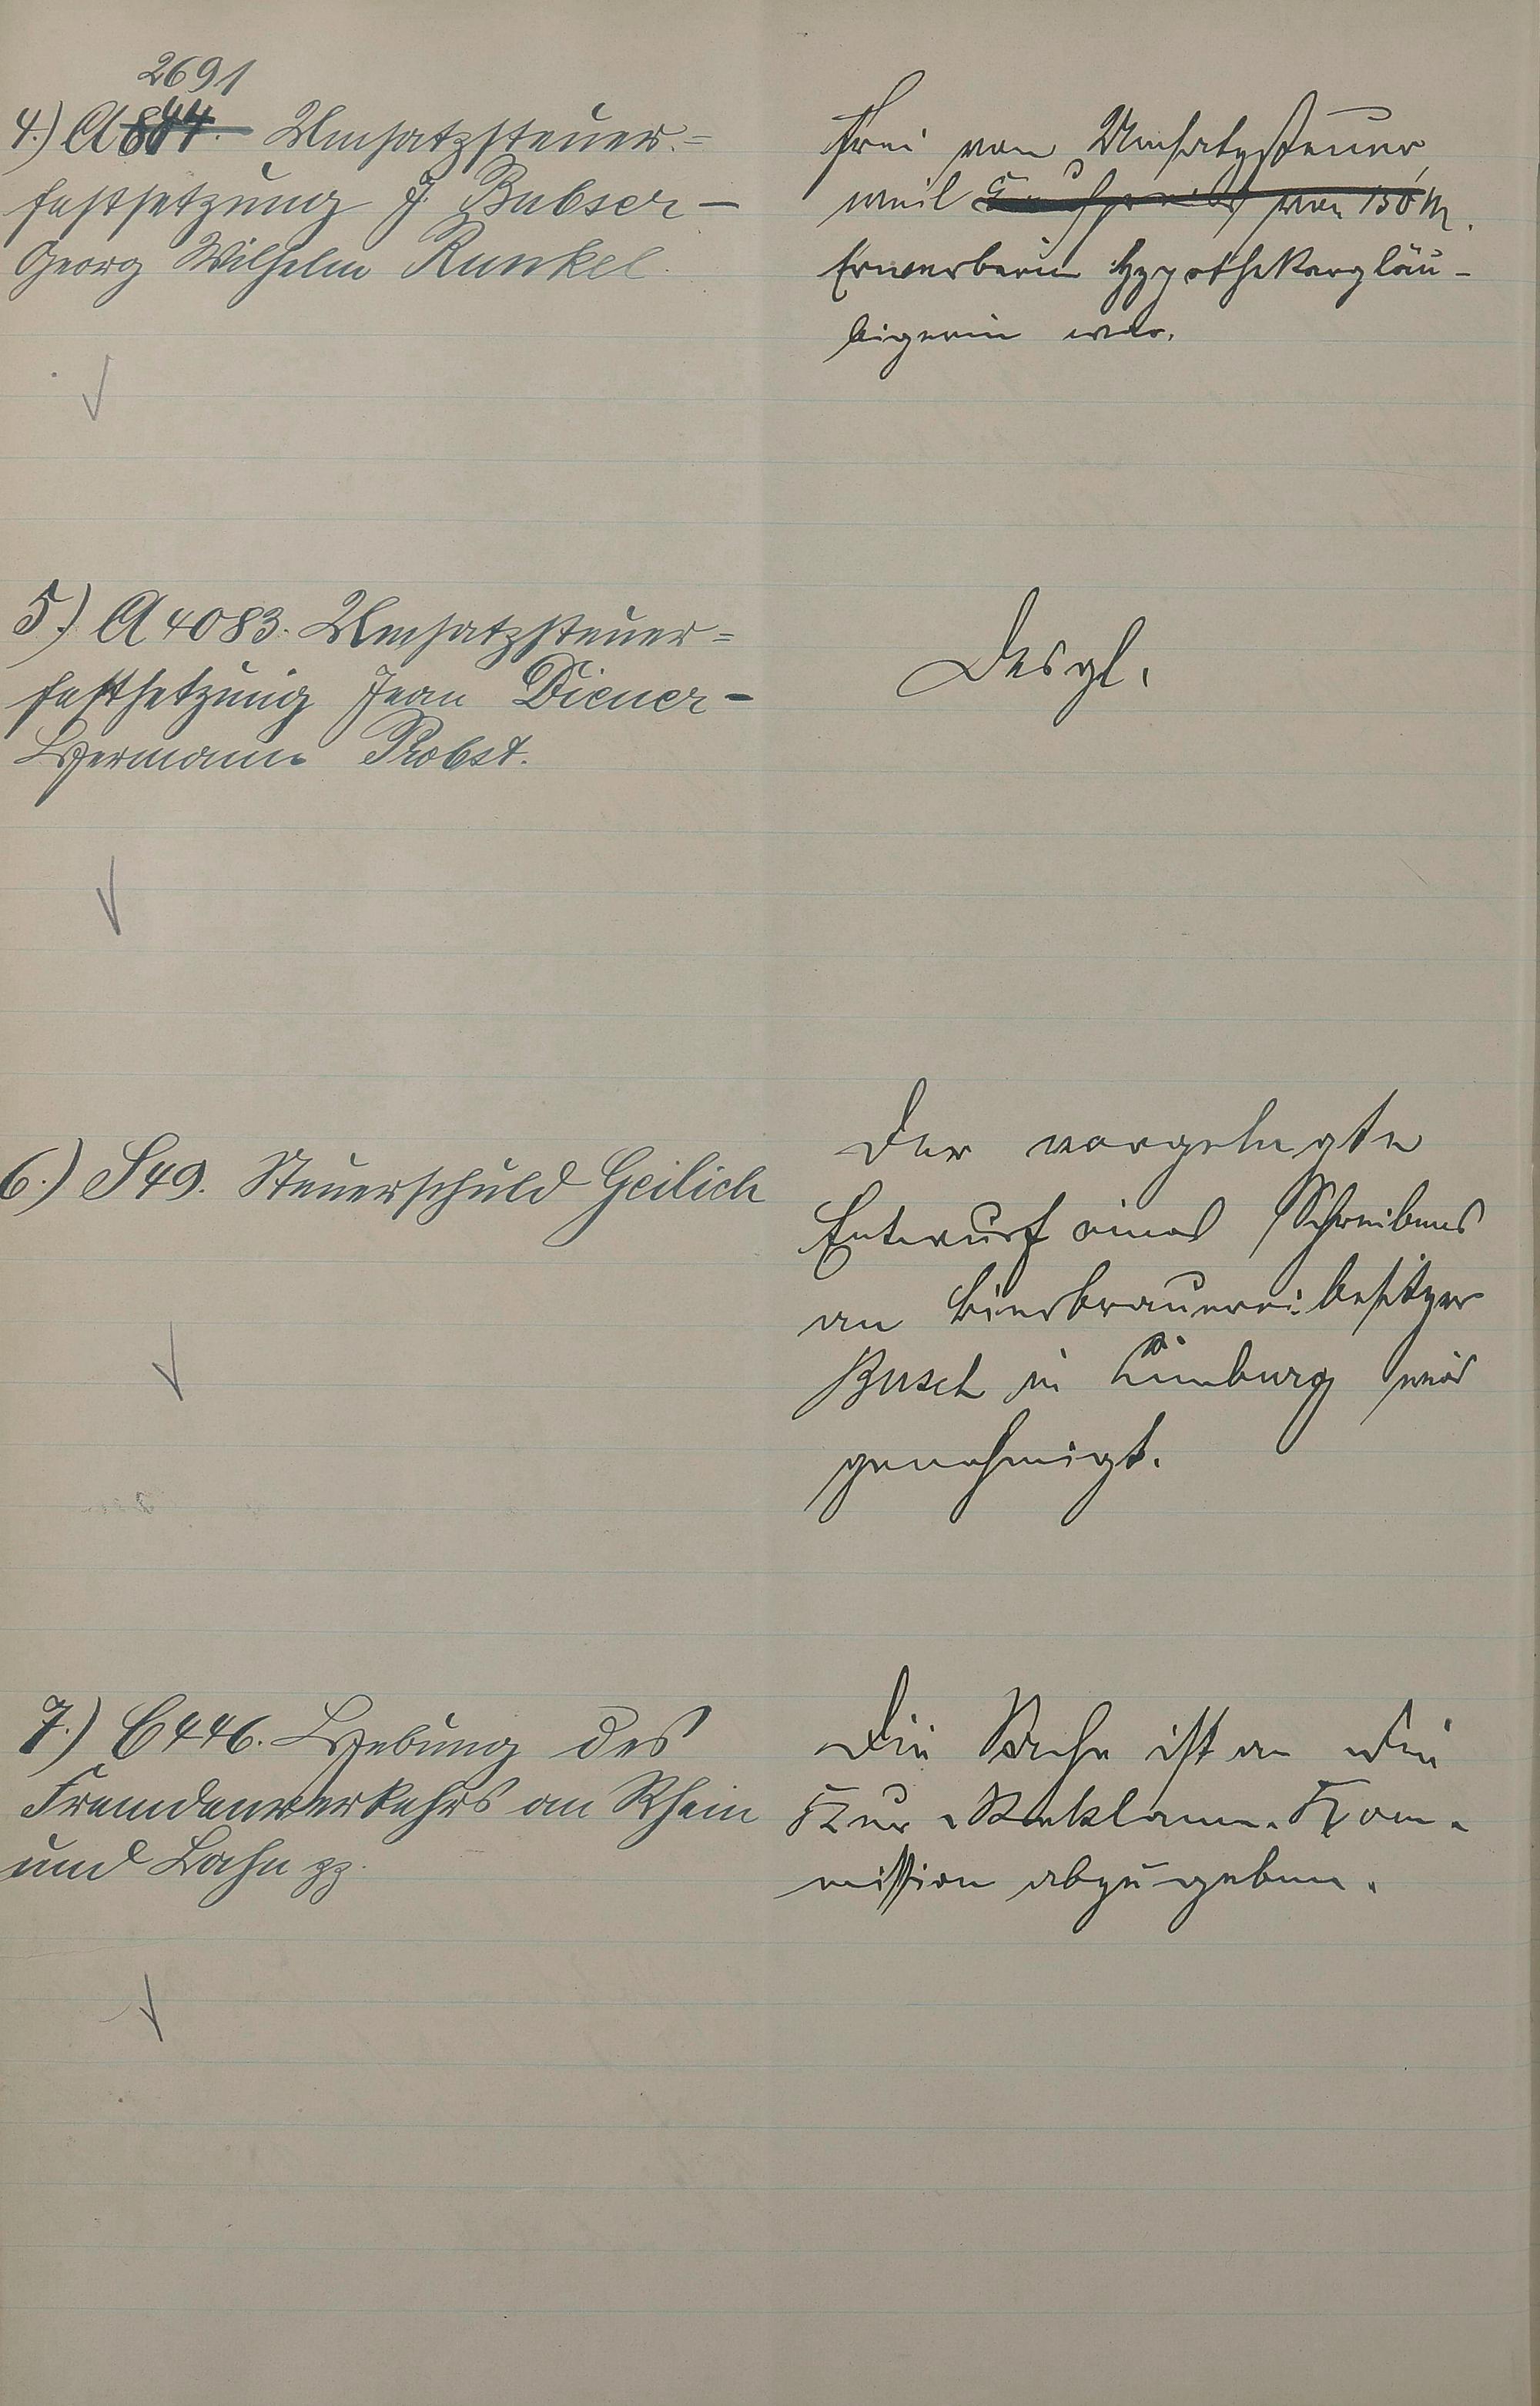 2691
4.) A 844. Umsatzsteuer=
festsetzung J. Bubser –
Georg Wilhelm Runkel.
Frei von Umsatzsteuer,
weil Kaufpreis von 150 M.
Erwerberin Hypothekargläu-
bigerin war.
5.) A 4083. Umsatzsteuer=
festsetzung Jean Diener –
Hermann Probst.
Desgl.
6.) S 49. Steuerschuld Geilich
Der vorgelegte
Entwurf eines Schreibens
an Bierbrauereibesitzer
Busch in Limburg wird
genehmigt.
7.) C 446. Hebung des
Fremdenverkehrs an Rhein
und Lahn pp.
Die Sache ist an die
Kur- & Reklame-Kom-
mission abzugeben.